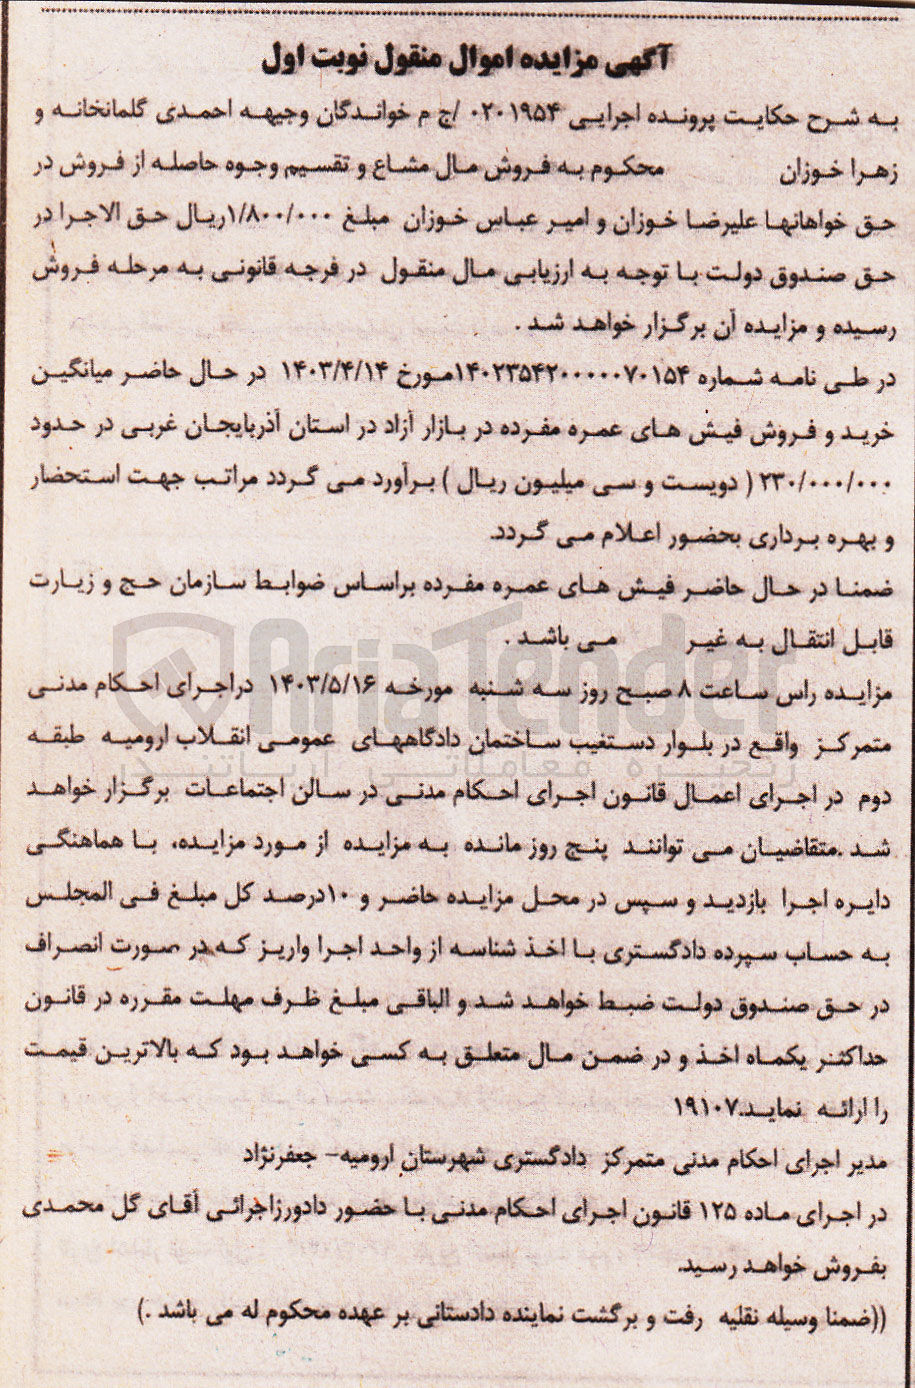 آگهی مزایده اموال منقول نوبت اول
به شرح حکایت پرونده اجرایی ۰۲۰۱۹۵۴ /ج م خواندگان وجیهه احمدی گلمانخانه و
زهرا خوزان محکوم به فروش مال مشاع و تقسیم وجوه حاصله از فروش در
حق خواهانها علیرضا خوزان و امیر عباس خوزان مبلغ ۱/۸۰۰/۰۰۰ریال حق الاجرا در
حق صندوق دولت با توجه به ارزیابی مال منقول در فرجه قانونی به مرحله فروش
رسیده و مزایده آن برگزار خواهد شد .
در طی نامه شماره ۱۴۰۲۳۵۴۲۰۰۰۰۰۷۰۱۵۴مورخ ۱۴۰۳/۴/۱۴ در حال حاضر میانگین
خرید و فروش فیش های عمره مفرده در بازار آزاد در استان آذربایجان غربی در حدود
۲۳۰/۰۰۰/۰۰۰ ( دویست و سی میلیون ریال ) برآورد می گردد مراتب جهت استحضار
و بهره برداری بحضور اعلام می گردد.
ضمنا در حال حاضر فیش های عمره مفرده براساس ضوابط سازمان حج و زیارت
قابل انتقال به غیر می باشد .
مزایده راس ساعت ۸ صبح روز سه شنبه مورخه ۱۴۰۳/۵/۱۶ دراجرای احکام مدنی
متمرکز واقع در بلوار دستغیب ساختمان دادگاههای عمومی انقلاب ارومیه طبقه
دوم در اجرای اعمال قانون اجرای احکام مدنی در سالن اجتماعات برگزار خواهد
شد .متقاضیان می توانند پنج روز مانده به مزایده از مورد مزایده، با هماهنگی
دایره اجرا بازدید و سپس در محل مزایده حاضر و ۱۰درصد کل مبلغ فی المجلس
به حساب سپرده دادگستری با اخذ شناسه از واحد اجرا واریز که در صورت انصراف
در حق صندوق دولت ضبط خواهد شد و الباقی مبلغ ظرف مهلت مقرره در قانون
حداکثر یکماه اخذ و در ضمن مال متعلق به کسی خواهد بود که بالاترین قیمت
را ارائه نماید.۱۹۱۰۷
مدیر اجرای احکام مدنی متمرکز دادگستری شهرستان ارومیه- جعفرنژاد
در اجرای ماده ۱۲۵ قانون اجرای احکام مدنی با حضور دادورزاجرائی آقای گل محمدی
بفروش خواهد رسید.
((ضمنا وسیله نقلیه رفت و برگشت نماینده دادستانی بر عهده محکوم له می باشد .)
AriaTender
زنجیره معاملاتی آریاتندر